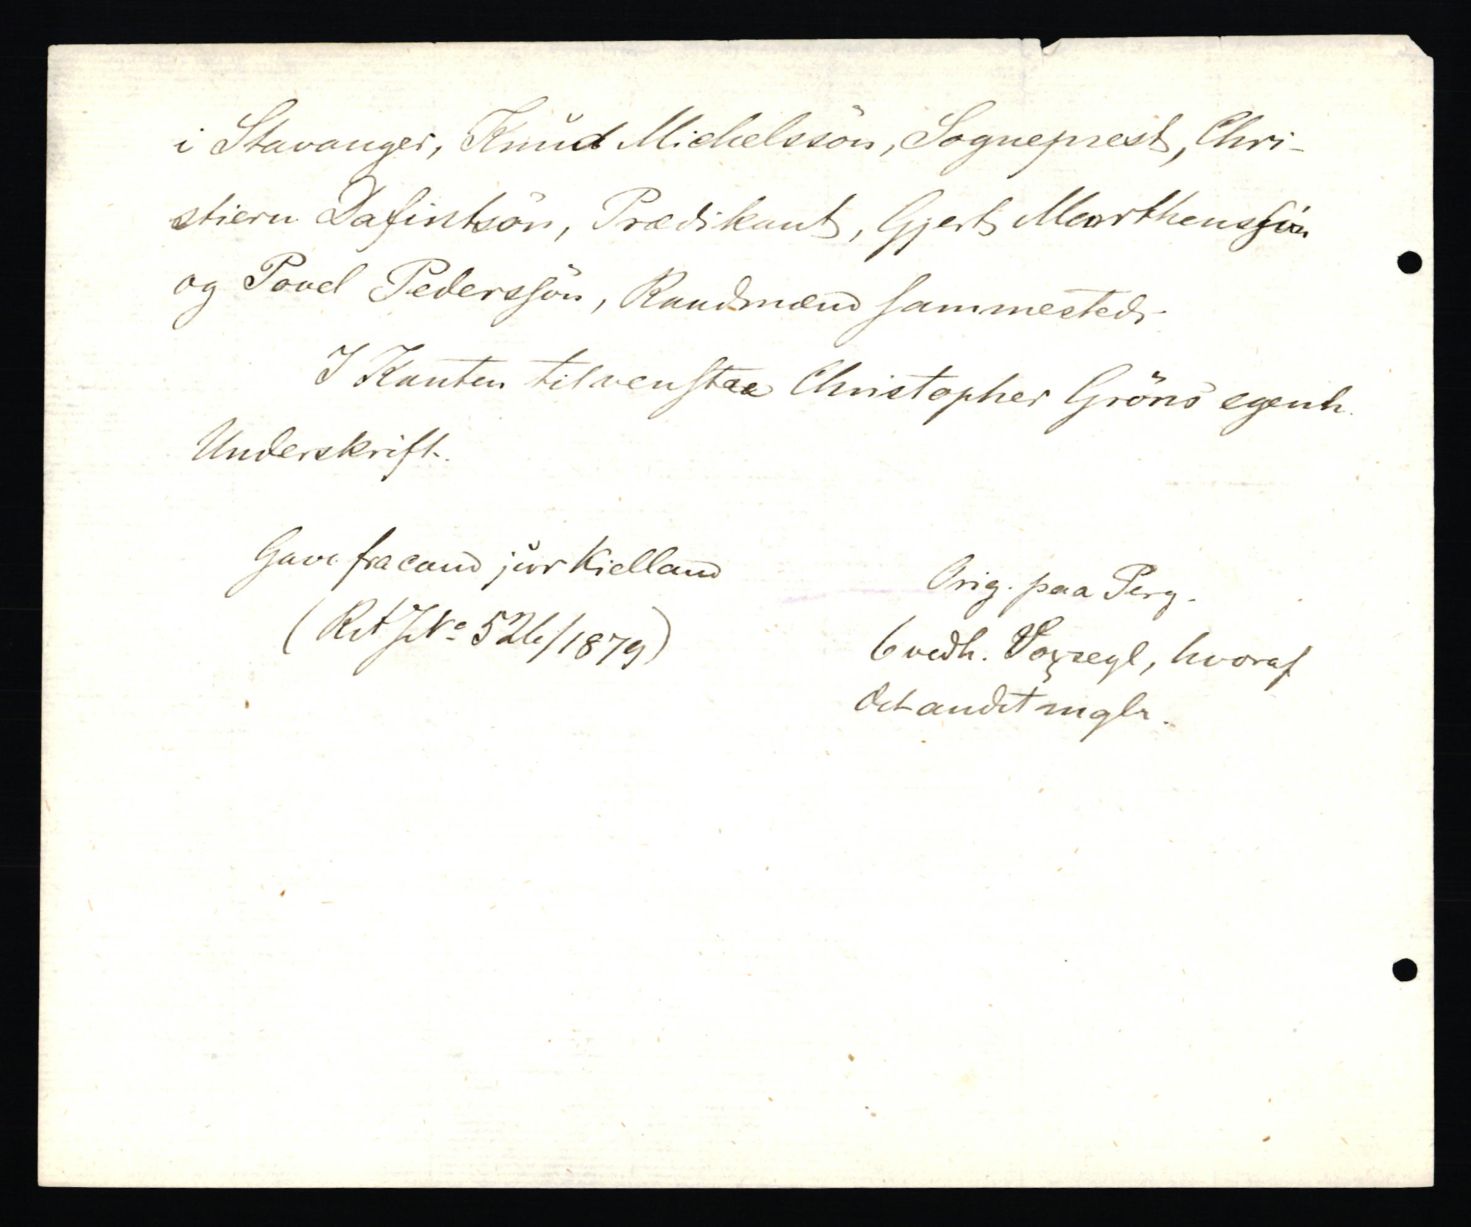 i Stavanger, Knud Michelssön, Sogneprest, Chri-
stiern Dafintsön, Prædikant, Gjert Marthenssön
og Povel Pederssön, Raadmænd sammesteds.
I Kanten tilvenstre Christopher Gröns egenh.
Underskrift.
Gave fra cand jur Kielland
(RA JNo 526/1879)
Orig. paa Perg.
6 vedh. Voxsegl, hvoraf
det andet mglr.